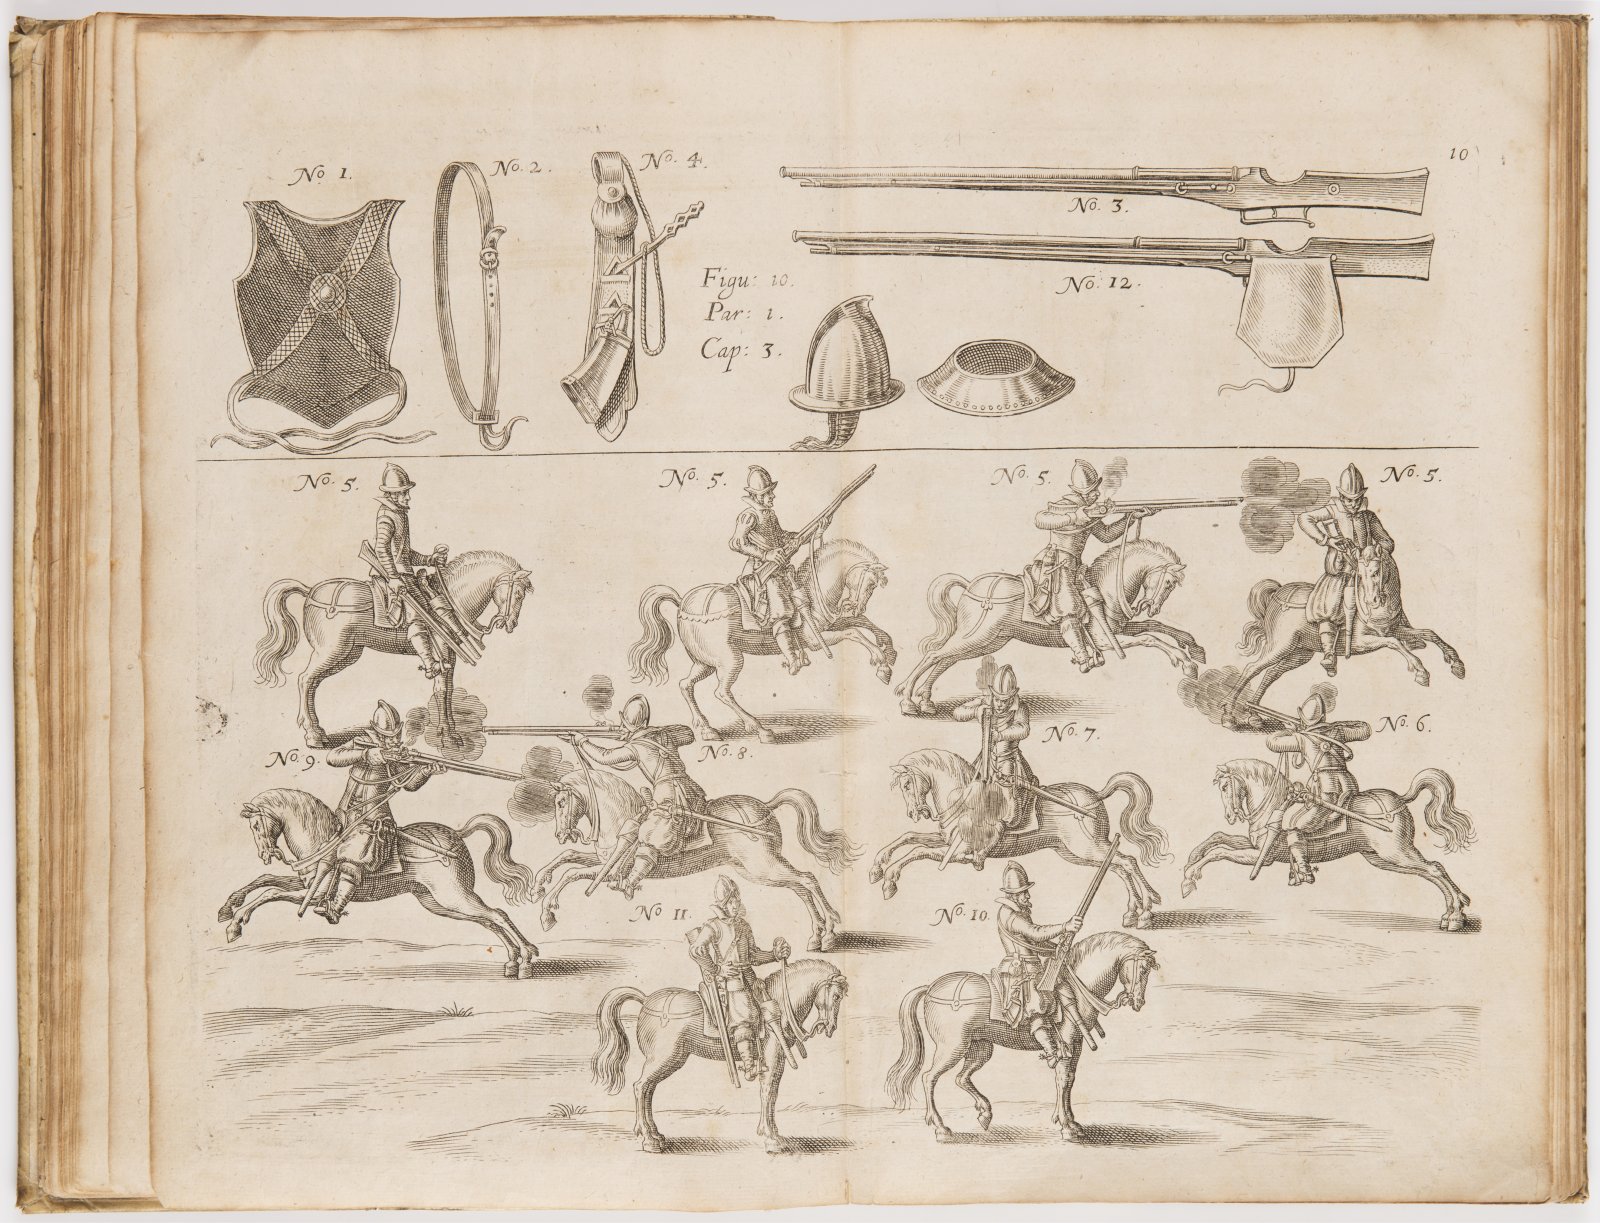 10
No 1.
No. 2.
No. 4.
No. 3.
Figu: 10.
Par: 1.
Cap: 3.
No. 12.
No. 5.
No. 5.
No. 5.
No. 5.
No. 9.
No. 8.
No. 7.
No. 6.
No 11.
No. 10.